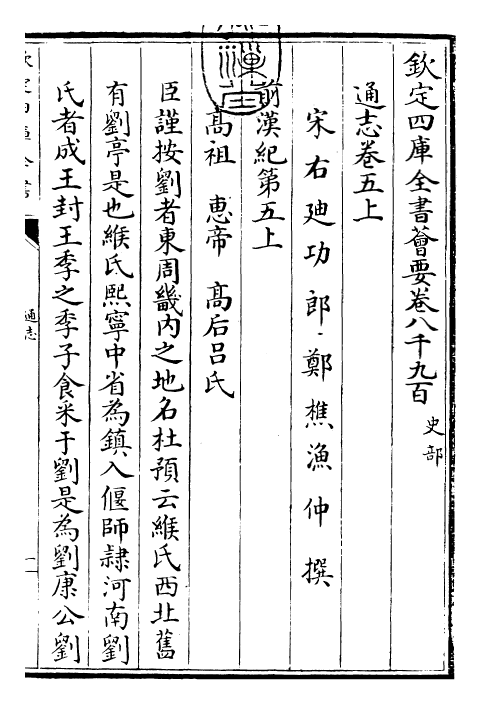 欽定四庫全書薈要卷八千九百 史部
通志卷五上
宋右廸功郎鄭樵漁仲撰
前漢紀第五上
髙祖 恵帝 髙后呂氏
臣謹按劉者東周畿内之地名杜預云緱氏西北舊
有劉亭是也緱氏熙寧中省為鎮入偃師隷河南劉
氏者成王封王季之季子食采于劉是為劉康公劉
通志
一